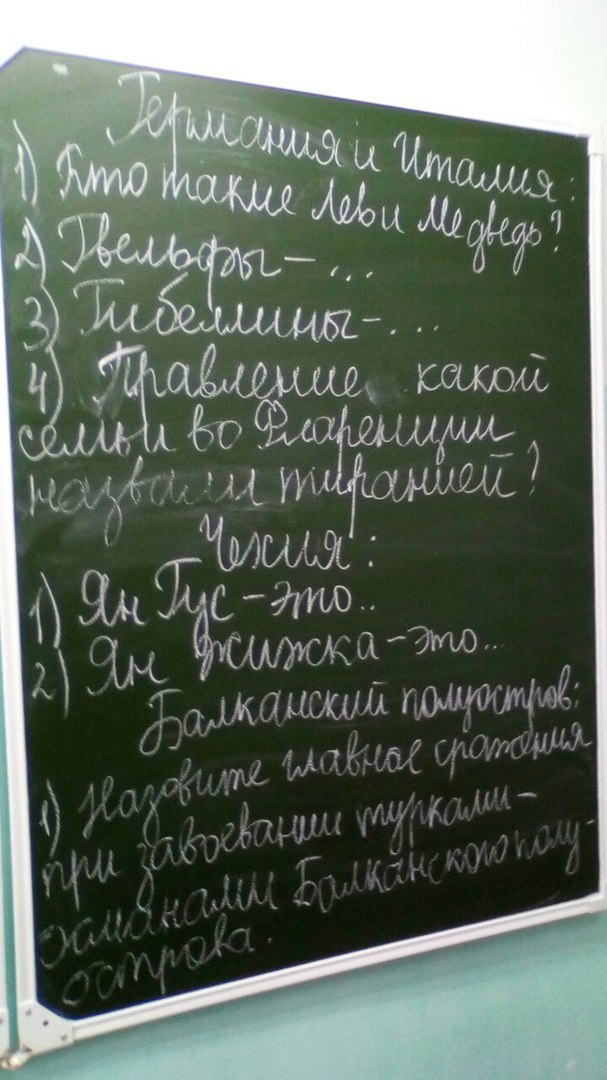 Германия и Италия:
1) Кто такие Лев и Медведь?
2) Гвельфы – ...
3) Гибеллины – ...
4) Правление какой
семьи во Фларенции
назвали тиранией?
Чехия:
1) Ян Гус – это..
2) Ян Жижка – это...
Балканский полуостров:
1) Назовите главное сражения
при завоевании турками-
османами Балканского полу-
острова.